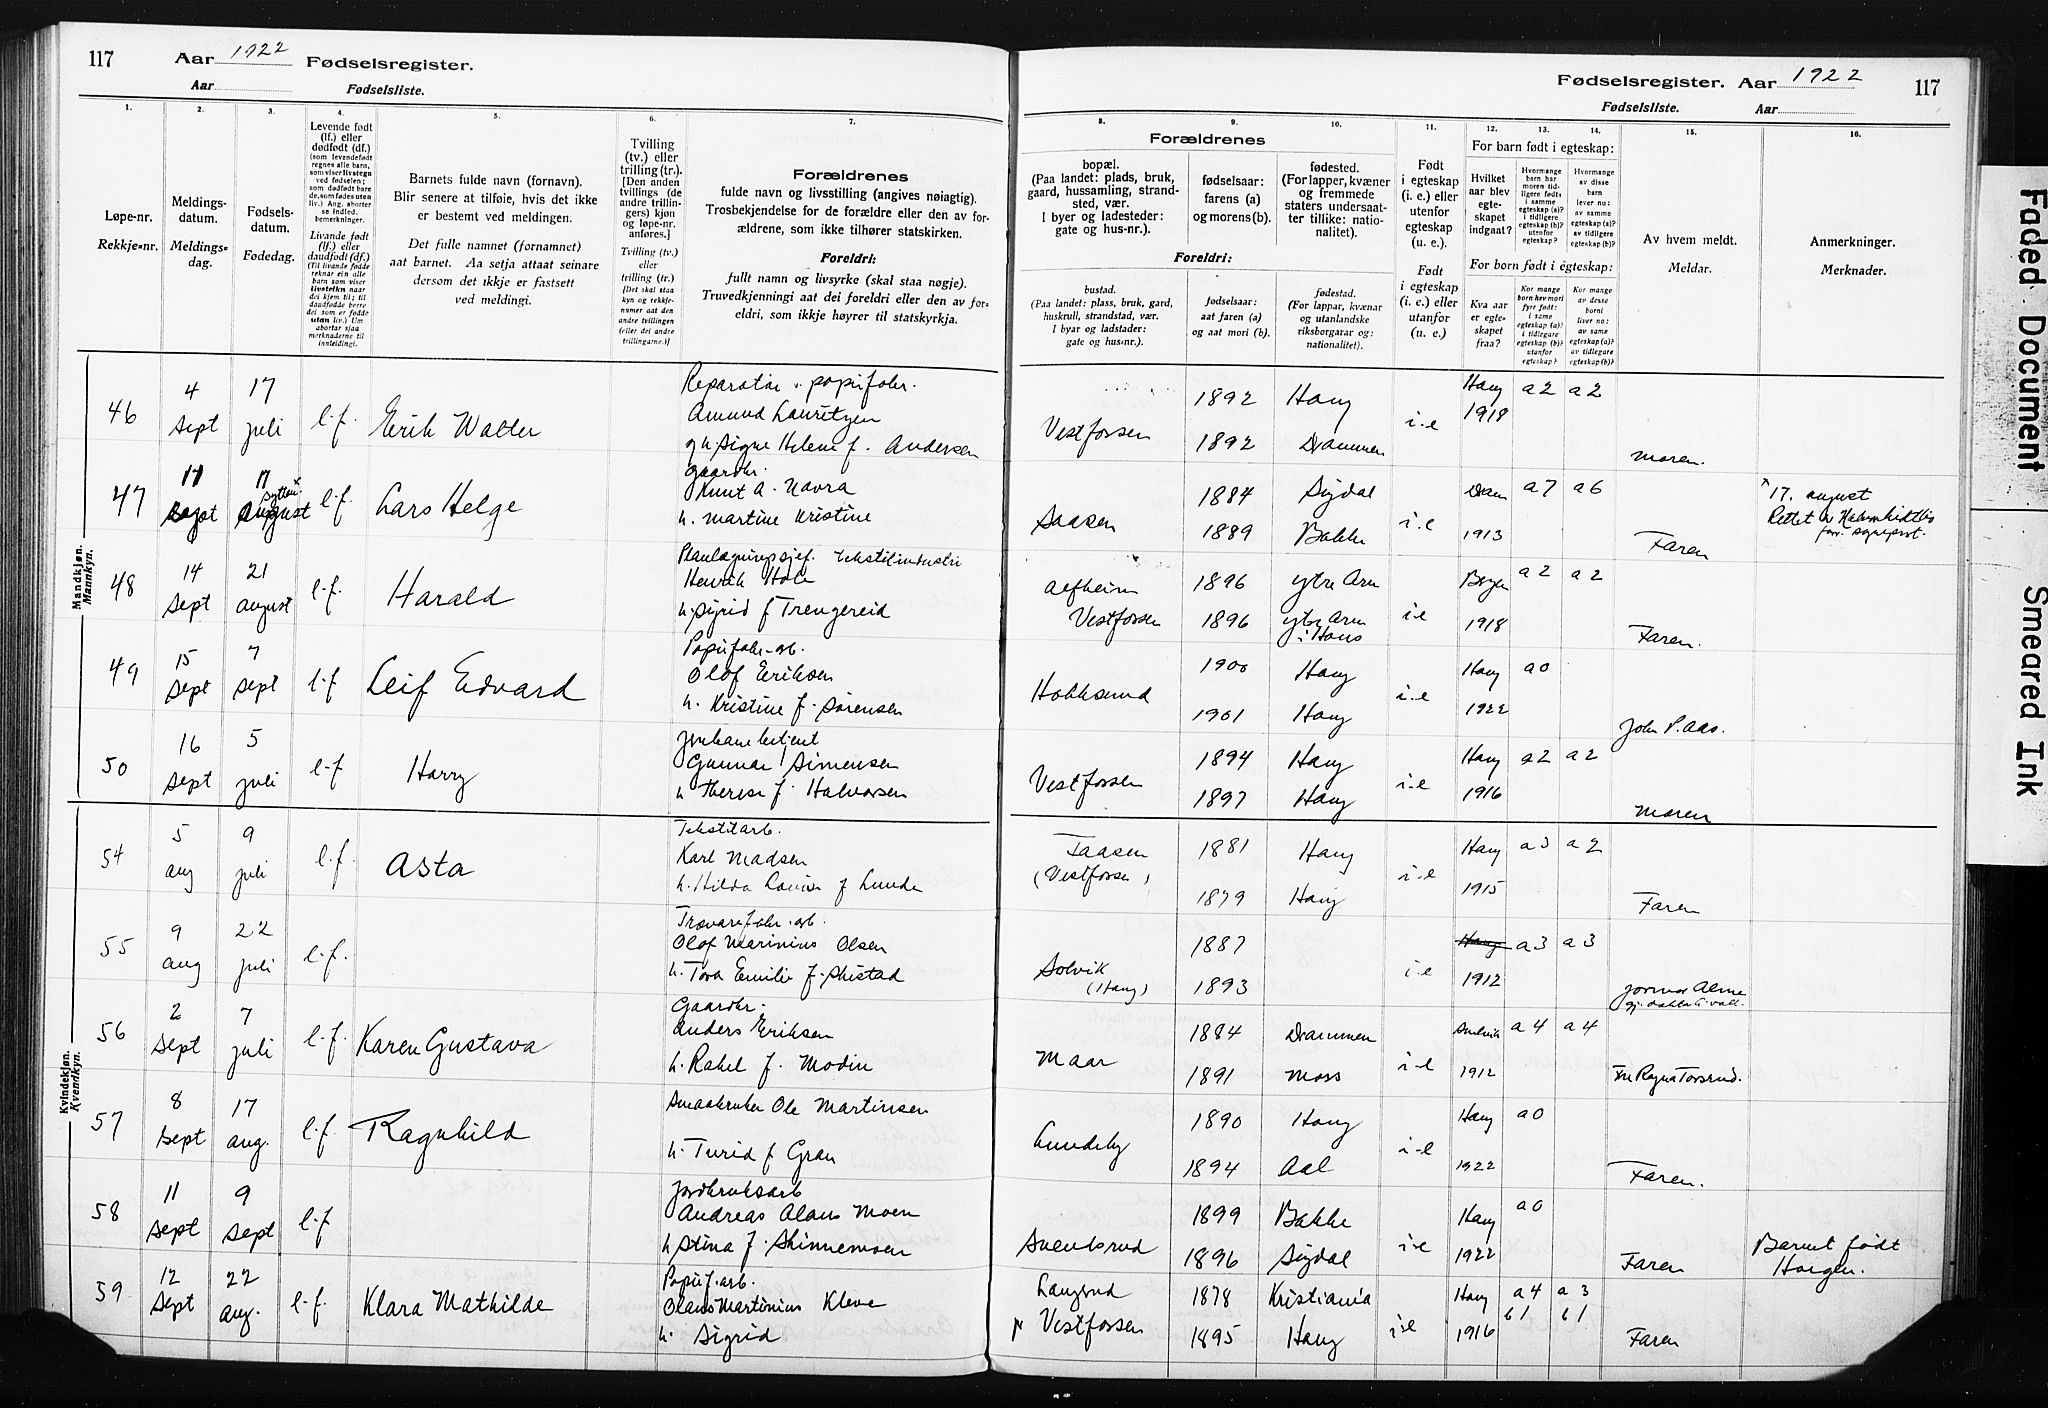 117 Aar 1922 Fødselsregister.
Aar Fødselsliste.
Fødselsregister. Aar 1922 117
Fødselsliste. Aar
1. 2. 3. 4. 5. 6. 7.
Løpe-nr.
Rekkje-nr.
Meldings-
datum.
Meldings-
dag.
Fødsels-
datum.
Fødedag.
Levende født
(lf.) eller
dødfødt (df.)
(som levendefødt
regnes alle barn,
som viser livstegn
ved fødselen;
som dødfødt bare
de, som fødes uten
liv.) Ang. aborter
se indled.
bemerkninger.
Livande født
(lf.) eller
daudfødt (df.)
(Til livande fødde
reknar ein alle
born som viser
livsteikn naar
dei kjem til; til
daudfødde berre
dei som er fødde
utan liv.) Um
abortar sjaa
merknaderne til
innleidingi.
Barnets fulde navn (fornavn).
Blir senere at tilføie, hvis det ikke
er bestemt ved meldingen.
Det fulle namnet (fornamnet)
aat barnet. Aa setja attaat seinare
dersom det ikkje er fastsett
ved meldingi.
Tvilling
(tv.) eller
trilling (tr.).
[Den anden
tvillings (de
andre trillin-
gers) kjøn
og løpe-nr.
anføres.]
Tvilling (tv.)
eller
trilling (tr.)
[Det skal staa
kyn og rekkje-
numer aat den
andre tvillingen
(eller dei andre
trillingarne.)]
Forældrenes
fulde navn og livsstilling (angives nøiagtig).
Trosbekjendelse for de forældre eller den av for-
ældrene, som ikke tilhører statskirken.
Foreldri:
fullt namn og livsyrke (skal staa nøgje).
Truvedkjenningi aat dei foreldri eller den av for-
eldri, som ikkje høyrer til statskyrkja.
8. 9. 10. 11. 12. 13. 14. 15. 16.
Forældrenes
bopæl.
(Paa landet: plads, bruk,
gaard, hussamling, strand-
sted, vær.
I byer og ladesteder:
gate og hus-nr.).
fødselsaar:
farens (a)
og morens (b).
fødested.
(For lapper, kvæner
og fremmede
staters undersaat-
ter tillike: natio-
nalitet).
Foreldri:
bustad.
(Paa landet: plass, bruk, gard,
huskrull, strandstad, vær.
I byar og ladstader:
gate og hus-nr.).
fødselsaar:
aat faren (a)
og aat mori (b).
fødestad.
(For lappar, kvænar
og utanlandske
riksborgarar og:
nationalitet).
Født
i egteskap
(i. e.) eller
utenfor
egteskap
(u. e.).
Født
i egteskap
(i. e.) eller
utanfor
egteskap
(u. e.).
For barn født i egteskap:
Hvilket
aar blev
egte-
skapet
indgaat?
Hvormange
barn har
moren tid-
ligere født:
i samme
egteskap (a)?
i tidligere
egteskap (b)?
utenfor
egteskap?
Hvormange
av disse
barn
lever nu:
av samme
egteskap (a)?
av tidligere
egteskap (b)?
For born født i egteskap:
Kva aar
er egte-
skapet
fraa?
Kor mange
born hev mori
fyrr født:
i same
egteskap (a)?
i tidlegare
egteskap (b)?
utanfor
egteskap?
Kor mange
av desse
borni
liver no:
av same
egteskap (a)?
av tidlegare
egteskap (b)?
Av hvem meldt.
Meldar.
Anmerkninger.
Merknader.
Mandkjøn.
Mannkyn.
46 4 Sept 17 juli l.f. Erik Walter
Reparatør papirfabr.
Amund Lauritzen
og h. Signe Helene f. Andersen
Vestfossen 1892 Haug 1892 Drammen i.e Haug 1918 a2 a2 Moren.
47 Sept 17 sytten august l.f Lars Helge
Gaardbr.
Knut A. Navra
h. Martine Kristine
Saasen 1884 Sigdal 1889 Bakke i.e Dram 1913 a7 a6 Faren
x 17. august
48 14 Sept 21 august l.f. Harald
tekstilindustri
Henrik
h. Sigrid f Trengereid
Alfheim Vestfossen 1896 Ytre Arn 1896 Ytre Arn i Haus i.e Bergen 1918 a2 a2 Faren.
49 15 Sept 7 sept l.f Leif Edvard
Papirfabr-arb.
Olof Eriksen
h. Kristine f. Sørensen
Hokksund 1900 Haug 1901 Haug i.e Haug 1922 a0 John P. Aas.
50 16 Sept 5 juli l.f Harry
Gunnar Simensen
h Therese f. Halvorsen
Vestfossen 1894 Haug 1897 Haug i.e Haug 1916 a2 a2 Moren
Kvindekjøn.
Kvendkyn.
54 5 aug 9 juli l.f. Asta
Tekstilarb.
Karl Madsen
h. Hilda Lovise f Lunde
Faasen (Vestfossen) 1881 Haug 1879 Haug i.e Haug 1915 a3 a2 Faren
55 9 aug 22 juli l.f.
Trævarefabr. arb.
Olof Marinius Olsen
h. Tora Emilie f. Skistad
Solvik (Haug) 1887 1893 i.e Haug 1912 a3 a3
56 2 Sept 7 juli l.f. Karen Gustava
Gaardbr.
Anders Eriksen
h. Rakel f. Modin
Maar 1884 Drammen 1891 Moss i.e 1912 a4 a4 Fru Ragna Torsrud.
57 8 Sept 17 aug. l.f. Ragnhild
Smaabruker Ole Martinsen
h. Turid f Gran
Lundeby 1890 Haug 1894 Aal i.e Haug 1922 a0 Faren.
58 11 Sept 9 Sept l.f
Jordbruksarb
Andreas Olaus Moen
h Stina f. Skinnemoen
Svensrud 1899 Bakke 1896 Sigdal i.e Haug 1922 a0 Faren
Barnet født
Horgen.
59 12 Sept 22 aug. l.f. Klara Mathilde
Papirf. arb.
Olaus Martinius Kleve
h. Sigrid
Langrud pr Vestfossen 1878 Kristiania 1895 Haug i.e Haug 1916 a4 b1 a3 b1 Faren
Faded Document
Smeared Ink